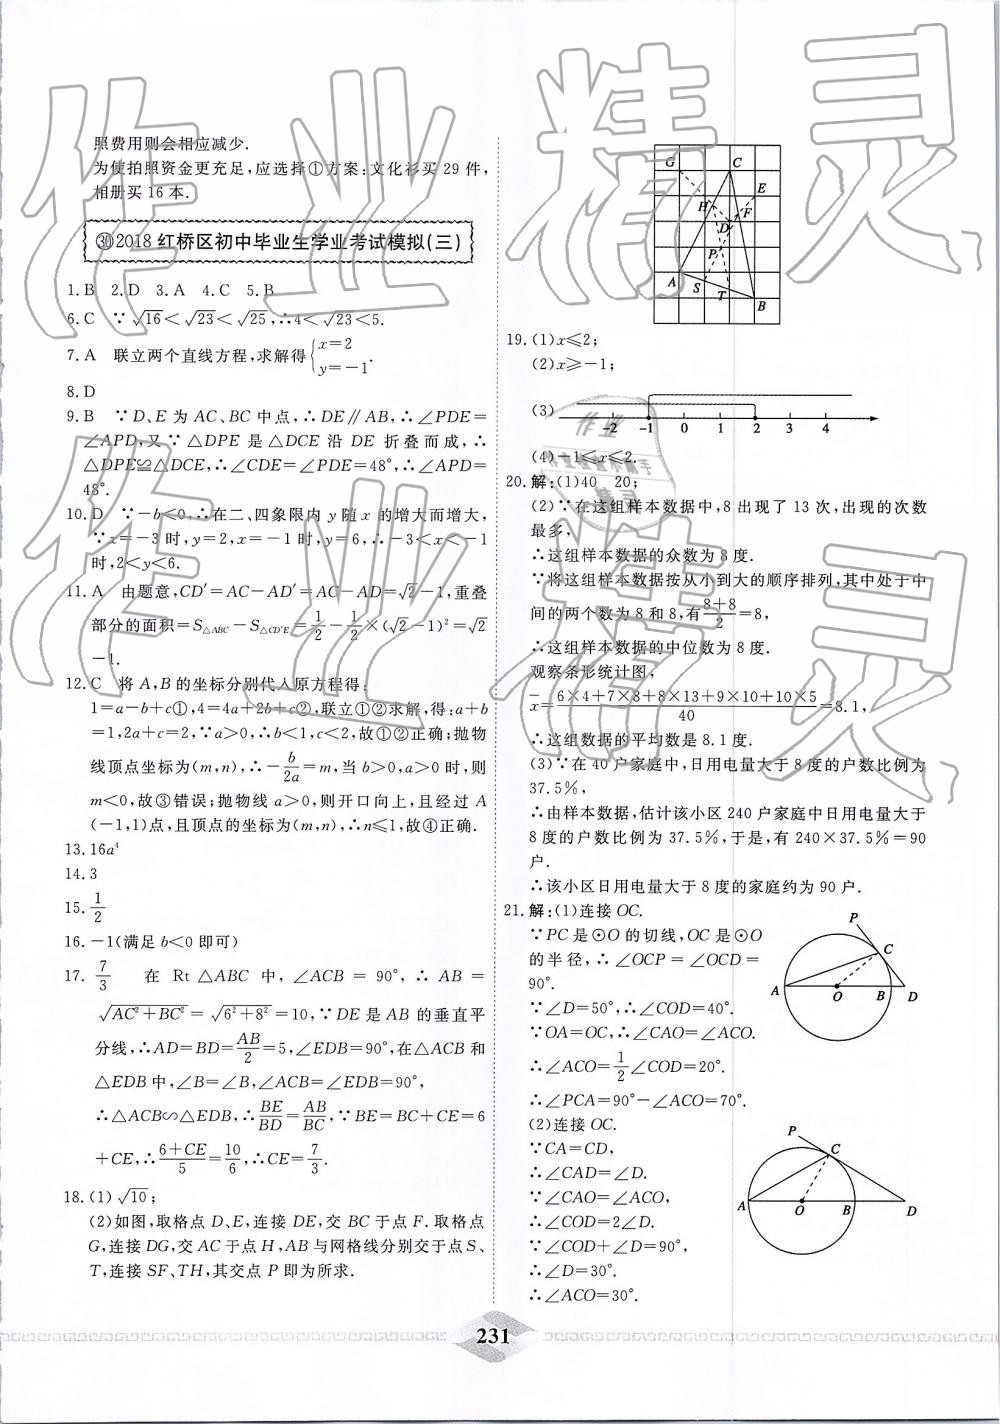 照费用则会相应减少.
为使拍照资金更充足,应选择①方案:文化衫买 29 件,
相册买 16 本.
㉚2018 红桥区初中毕业生学业考试模拟(三)
1.B 2.D 3.A 4.C 5.B
6.C ∵√16<√23<√25,∴4<√23<5.
7.A 联立两个直线方程,求解得{x=2
y=-1.
8.D
9.B ∵D、E 为 AC、BC 中点,∴DE∥AB,∴∠PDE=
∠APD,又∵△DPE 是△DCE 沿 DE 折叠而成,∴
△DPE≌△DCE,∴∠CDE=∠PDE=48°,∴∠APD=
48°.
10.D ∵-b<0,∴在二、四象限内 y 随 x 的增大而增大,
∵x=-3 时,y=2,x=-1 时,y=6,∴-3<x<-1
时,2<y<6.
11.A 由题意,CD′=AC-AD′=AC-AD=√2-1,重叠
部分的面积=S△ABC-S△CD′E=1/2-1/2×(√2-1)²=√2
-1.
12.C 将 A,B 的坐标分别代入原方程得:
1=a-b+c①,4=4a+2b+c②,联立①②求解,得:a+b
=1,2a+c=2,∵a>0,∴b<1,c<2,故①②正确;抛物
线顶点坐标为(m,n),∴-b/2a=m,当 b>0,a>0 时,则
m<0,故③错误;抛物线 a>0,则开口向上,且经过 A
(-1,1)点,且顶点的坐标为(m,n),∴n≤1,故④正确.
13.16a⁴
14.3
15.1/2
16.-1(满足 b<0 即可)
17.7/3 在 Rt△ABC 中,∠ACB=90°,∴AB=
√AC²+BC²=√6²+8²=10,∵DE 是 AB 的垂直平
分线,∴AD=BD=AB/2=5,∠EDB=90°,在△ACB 和
△EDB 中,∠B=∠B,∠ACB=∠EDB=90°,
∴△ACB∽△EDB,∴BE/BD=AB/BC,∵BE=BC+CE=6
+CE,∴6+CE/5=10/6,∴CE=7/3.
18.(1)√10;
(2)如图,取格点 D、E,连接 DE,交 BC 于点 F.取格点
G,连接 DG,交 AC 于点 H,AB 与网格线分别交于点 S、
T,连接 SF、TH,其交点 P 即为所求.
G C
E
H F
D
P
A S T
B
19.(1)x≤2;
(2)x≥-1;
(3)
-2 -1 0 1 2 3 4
(4)-1≤x≤2.
20.解:(1)40 20;
(2)∵在这组样本数据中,8 出现了 13 次,出现的次数
最多,
∴这组样本数据的众数为 8 度.
∵将这组样本数据按从小到大的顺序排列,其中处于中
间的两个数为 8 和 8,有8+8/2=8,
∴这组样本数据的中位数为 8 度.
观察条形统计图,
x̄=6×4+7×8+8×13+9×10+10×5/40=8.1,
∴这组数据的平均数是 8.1 度.
(3)∵在 40 户家庭中,日用电量大于 8 度的户数比例为
37.5%,
∴由样本数据,估计该小区 240 户家庭中日用电量大于
8 度的户数比例为 37.5%,于是,有 240×37.5%=90
户.
∴该小区日用电量大于 8 度的家庭约为 90 户.
21.解:(1)连接 OC.
∵PC 是⊙O 的切线,OC 是⊙O
的半径,∴∠OCP=∠OCD=
90°.
∵∠D=50°,∴∠COD=40°.
∵OA=OC,∴∠CAO=∠ACO.
∴∠ACO=1/2∠COD=20°.
∴∠PCA=90°-∠ACO=70°.
P
C
A O B D
(2)连接 OC.
∵CA=CD,
∴∠CAD=∠D.
∵∠CAO=∠ACO,
∴∠COD=2∠D.
∵∠COD+∠D=90°,
∴∠D=30°.
∴∠ACO=30°.
P
C
A O B D
231
作业精灵
作业精灵